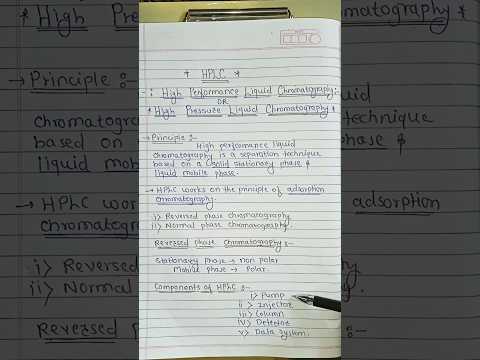 * HPLC *
-: High Performance Liquid Chromatography:-
OR
* High Pressure Liquid Chromatography *
→ Principle :-
High performance liquid
chromatography is a separation technique
based on a solid stationary phase &
liquid mobile phase.
→ HPLC works on the principle of adsorption
chromatography.
i) Reversed phase chromatography
ii) Normal phase chromatography.
Reversed phase chromatography:-
Stationary phase → non polar
Mobile phase → Polar.
Components of HPLC :-
i) Pump
ii) Injector
iii) Column
iv) Detector
v) Data System.